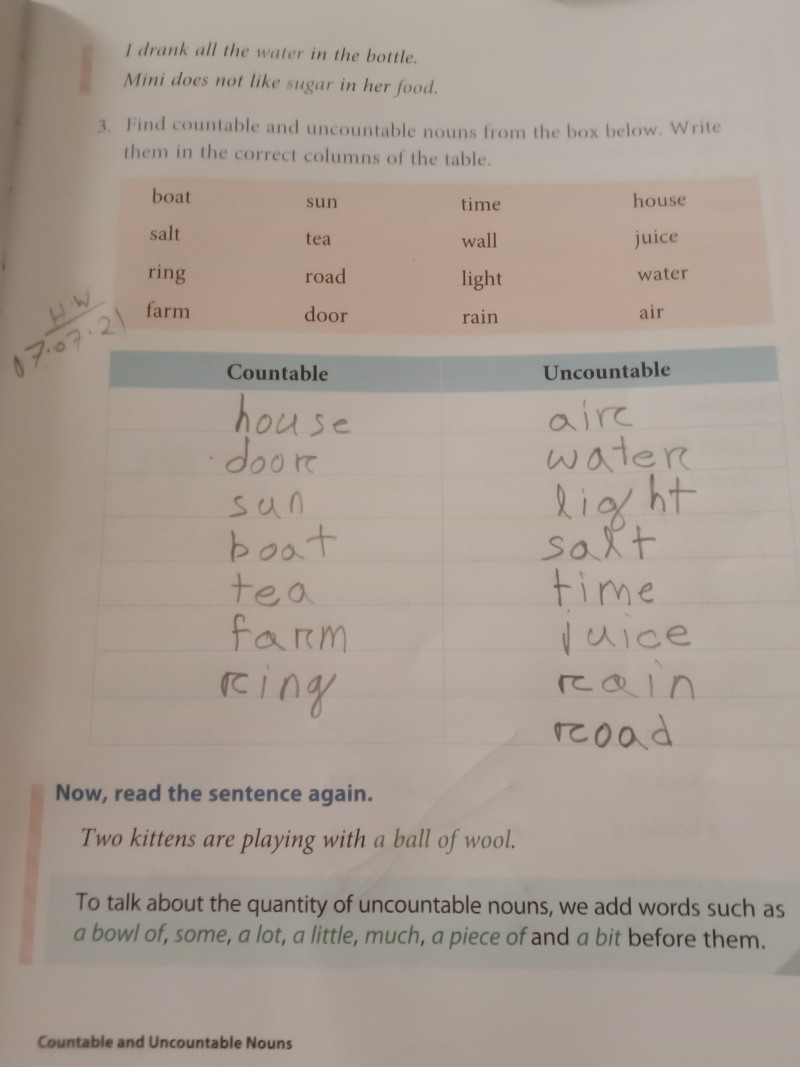 I drank all the water in the bottle.
Mini does not like sugar in her food.
3. Find countable and uncountable nouns from the box below. Write
them in the correct columns of the table.
boat sun time house
salt tea wall juice
ring road light water
farm door rain air
H.W
07.07.21
Countable Uncountable
house air
door water
sun light
boat salt
tea time
farm juice
ring rain
road
Now, read the sentence again.
Two kittens are playing with a ball of wool.
To talk about the quantity of uncountable nouns, we add words such as
a bowl of, some, a lot, a little, much, a piece of and a bit before them.
Countable and Uncountable Nouns